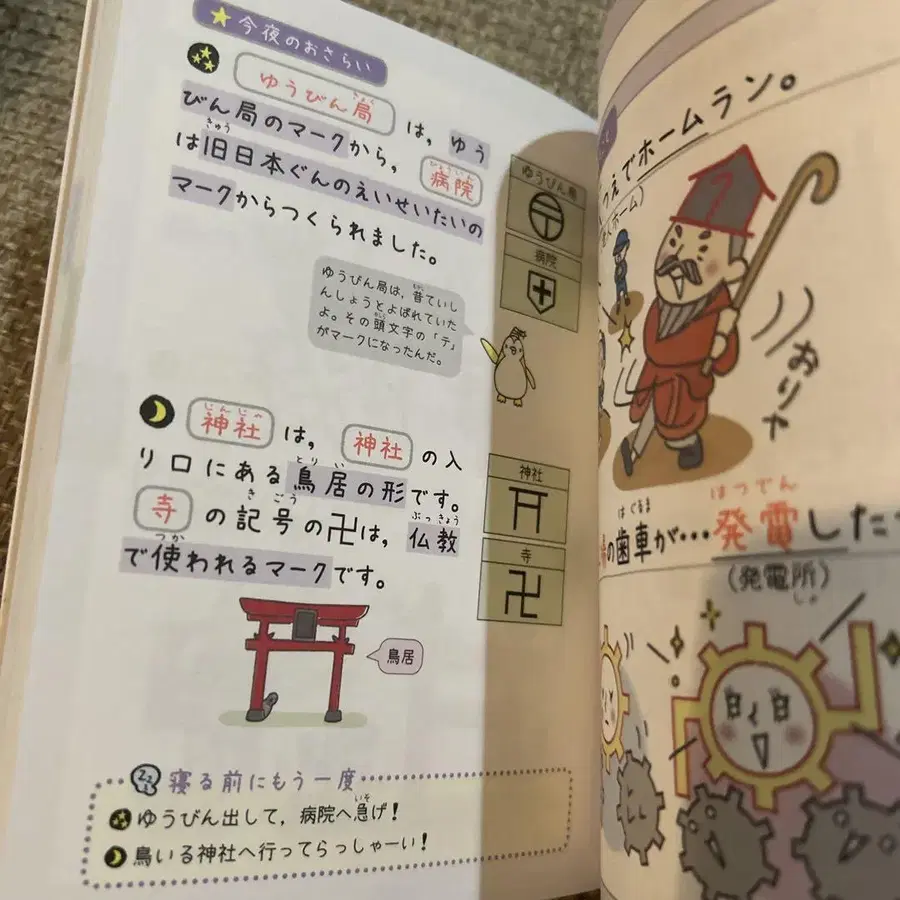 今夜のおさらい
ゆうびん局は，ゆう
びん局のマークから，病院
は旧日本ぐんのえいせいたいの
マークからつくられました。
ゆうびん局は，昔ていし
んしょうとよばれていた
よ。その頭文字の「テ」
がマークになったんだ。
ゆうびん局
病院
神社は，神社の入
り口にある鳥居の形です。
寺の記号の卍は，仏教
で使われるマークです。
神社
寺
鳥居
寝る前にもう一度
ゆうびん出して，病院へ急げ！
鳥いる神社へ行ってらっしゃーい！
つえでホームラン。
人ホーム）
おりゃ
の歯車が…発電した
（発電所）